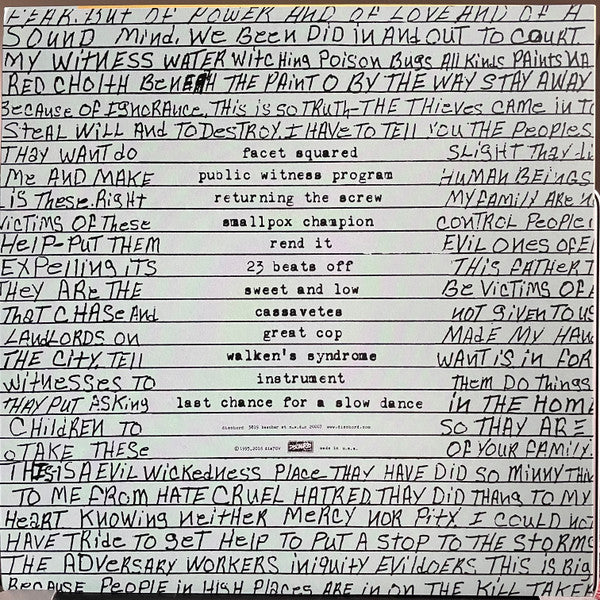 FEAR. But OF POWER AND OF LOVE AND OF A
SOUND MIND. WE BEEN DID IN AND OUT TO COURT
MY WITNESS WATER WITCHING POISON BUGS All KINDS PAINTS
RED CHOITH BENEAH THE PAINT O BY THE WAY STAY AWAY
BECAUSE OF IGNORANCE. THIS IS SO TRUTH-THE THIEVES CAME IN TO
STEAL WILL AND TO DESTROY. I HAVE TO TELL YOU THE PEOPLES
THAY WANT do facet squared SLIGHT THAY
ME AND MAKE public witness program HUMAN BEINGS
IS THESE. RIGHT returning the screw MY FAMILY ARE
VICTIMS OF THESE smallpox champion CONTROL PEOPLE
HELP-PUT THEM rend it EVIL ONES OF
EXPELLING ITS 23 beats off THIS FATHER
THEY ARE THE sweet and low BE VICTIMS OF
THAT CHASE AND cassavetes NOT GIVEN TO US
LANDLORDS ON great cop MADE MY
THE CITY. TELL walken's syndrome WANT IS IN FOR
WITNESSES TO instrument THEM DO THINGS
THAY PUT ASKING last chance for a slow dance IN THE
CHILDREN TO dischord 3819 beecher st n.w. d.c 20007 www.dischord.com SO THAY ARE
TAKE THESE ©1993, 2016 dis70V DISCHORD made in u.s.a. OF YOUR FAMILY.
THIS IS A EVIL WICKEDNESS PLACE THAY HAVE DID SO MINNY
TO ME FROM HATE CRUEL HATRED THAY DID THANG TO MY
HEART KNOWING NEITHER MERCY NOR PITY. I COULD NOT
HAVE TRIDE TO GET HELP TO PUT A STOP TO THE STORMS
THE ADVERSARY WORKERS INIQUITY EVILDOERS THIS IS BIG
BECAUSE PEOPLE IN HIGH PLACES ARE IN ON THE KILL TAKE